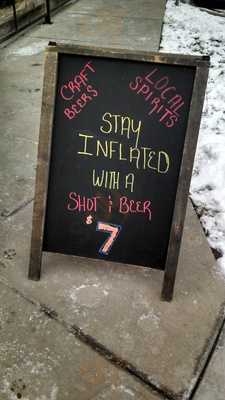 CRAFT
BEERS
LOCAL
SPIRITS
STAY
INFLATED
WITH A
SHOT & BEER
$7